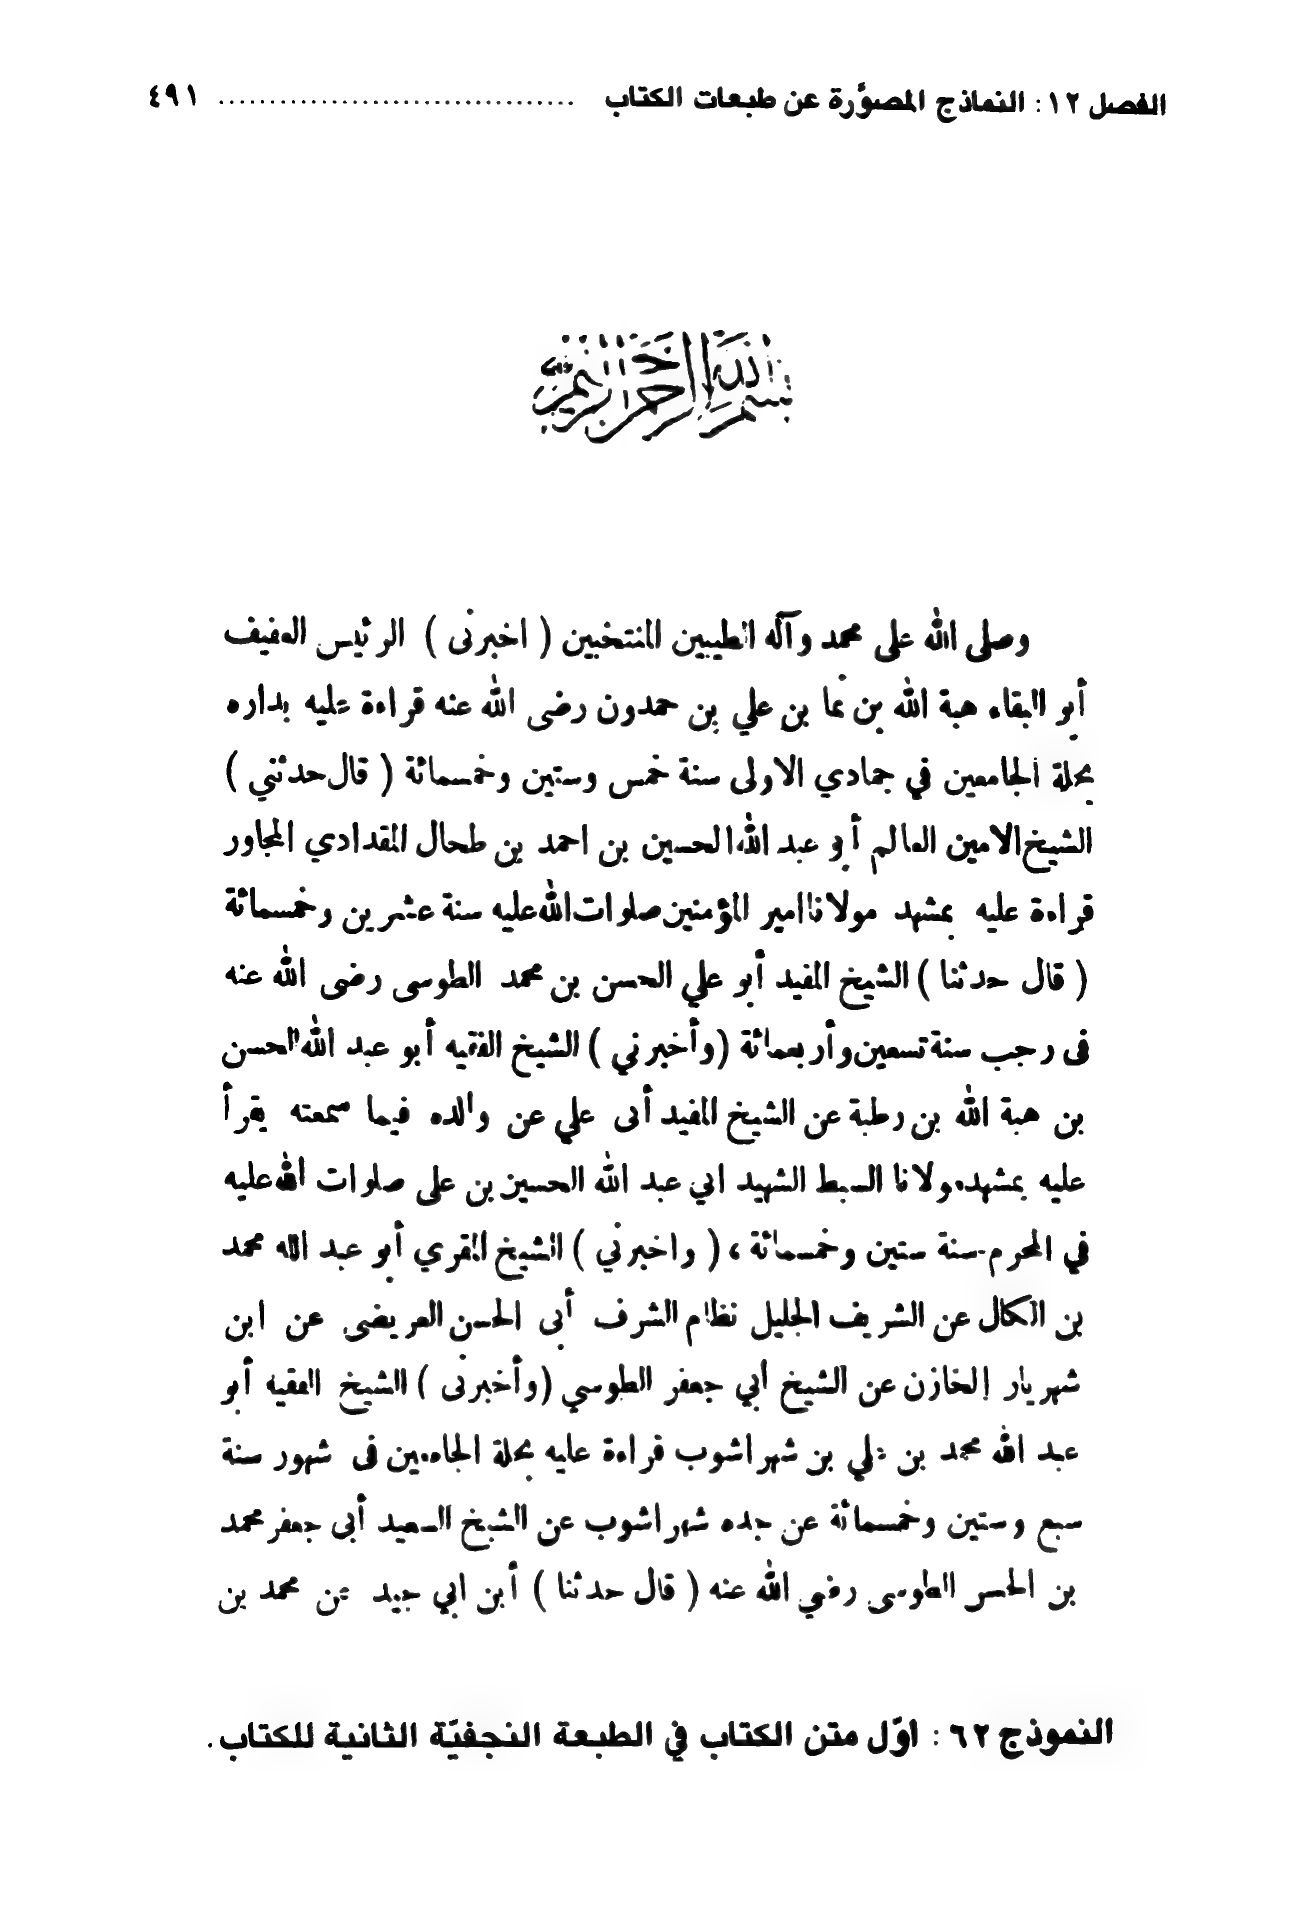 الفصل ١٢: النماذج المصوَّرة عن طبعات الكتاب .................................. ٤٩١
بسم الله الرحمن الرحيم
وصلى الله على محمد وآله الطيبين المنتخبين ( اخبرنى ) الرئيس العفيف
أبو البقاء هبة الله بن نما بن علي بن حمدون رضى الله عنه قراءة عليه بداره
بحلة الجامعين في جمادي الاولى سنة خمس وستين وخمسمائة ( قال حدثني )
الشيخ الامين العالم أبو عبد الله الحسين بن احمد بن طحال المقدادي المجاور
قراءة عليه بمشهد مولانا امير المؤمنين صلوات الله عليه سنة عشرين وخمسمائة
( قال حدثنا ) الشيخ المفيد أبو علي الحسن بن محمد الطوسى رضى الله عنه
فى رجب سنة تسعين وأربعمائة ( وأخبرني ) الشيخ الفقيه أبو عبد الله الحسن
بن هبة الله بن رطبة عن الشيخ المفيد أبى علي عن والده فيما سمعته يقرأ
عليه بمشهد مولانا السبط الشهيد ابي عبد الله الحسين بن على صلوات الله عليه
في المحرم سنة ستين وخمسمائة ، ( واخبرني ) الشيخ المقري أبو عبد الله محمد
بن الكال عن الشريف الجليل نظام الشرف أبى الحسن العريضى عن ابن
شهريار الخازن عن الشيخ أبي جعفر الطوسي ( وأخبرنى ) الشيخ الفقيه أبو
عبد الله محمد بن علي بن شهراشوب قراءة عليه بحلة الجامعين فى شهور سنة
سبع وستين وخمسمائة عن جده شهراشوب عن الشيخ السعيد أبى جعفر محمد
بن الحسن الطوسى رضي الله عنه ( قال حدثنا ) أبن ابي جيد عن محمد بن
النموذج ٦٢ : أوّل متن الكتاب في الطبعة النجفيّة الثانية للكتاب .